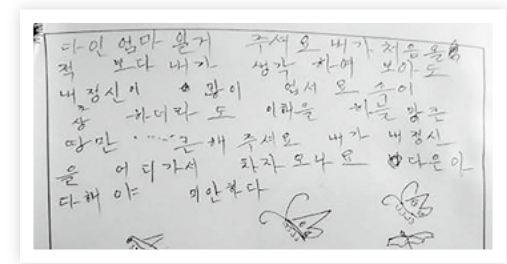 다인 엄마 읽거 주세요 내가 처음 올
적 보다 내가 생각 하여 보아도
내 정신이 광이 업서요 순이
상 하더라도 이해을 하고 많은
땅만 ····· 근해 주세요 내가 내 정신
을 어디가서 찾자 오나요 다은아
다해야 미안하다